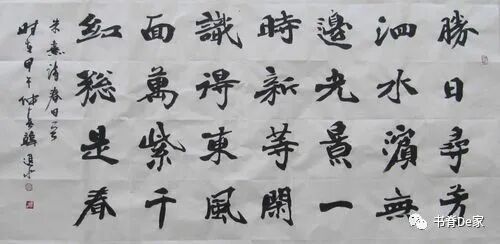 勝日尋芳
泗水濱無
邊光景一
時新等閑
識得東風
面萬紫千
紅總是春
朱熹詩春日一首
時在甲午仲春韓
书育De家